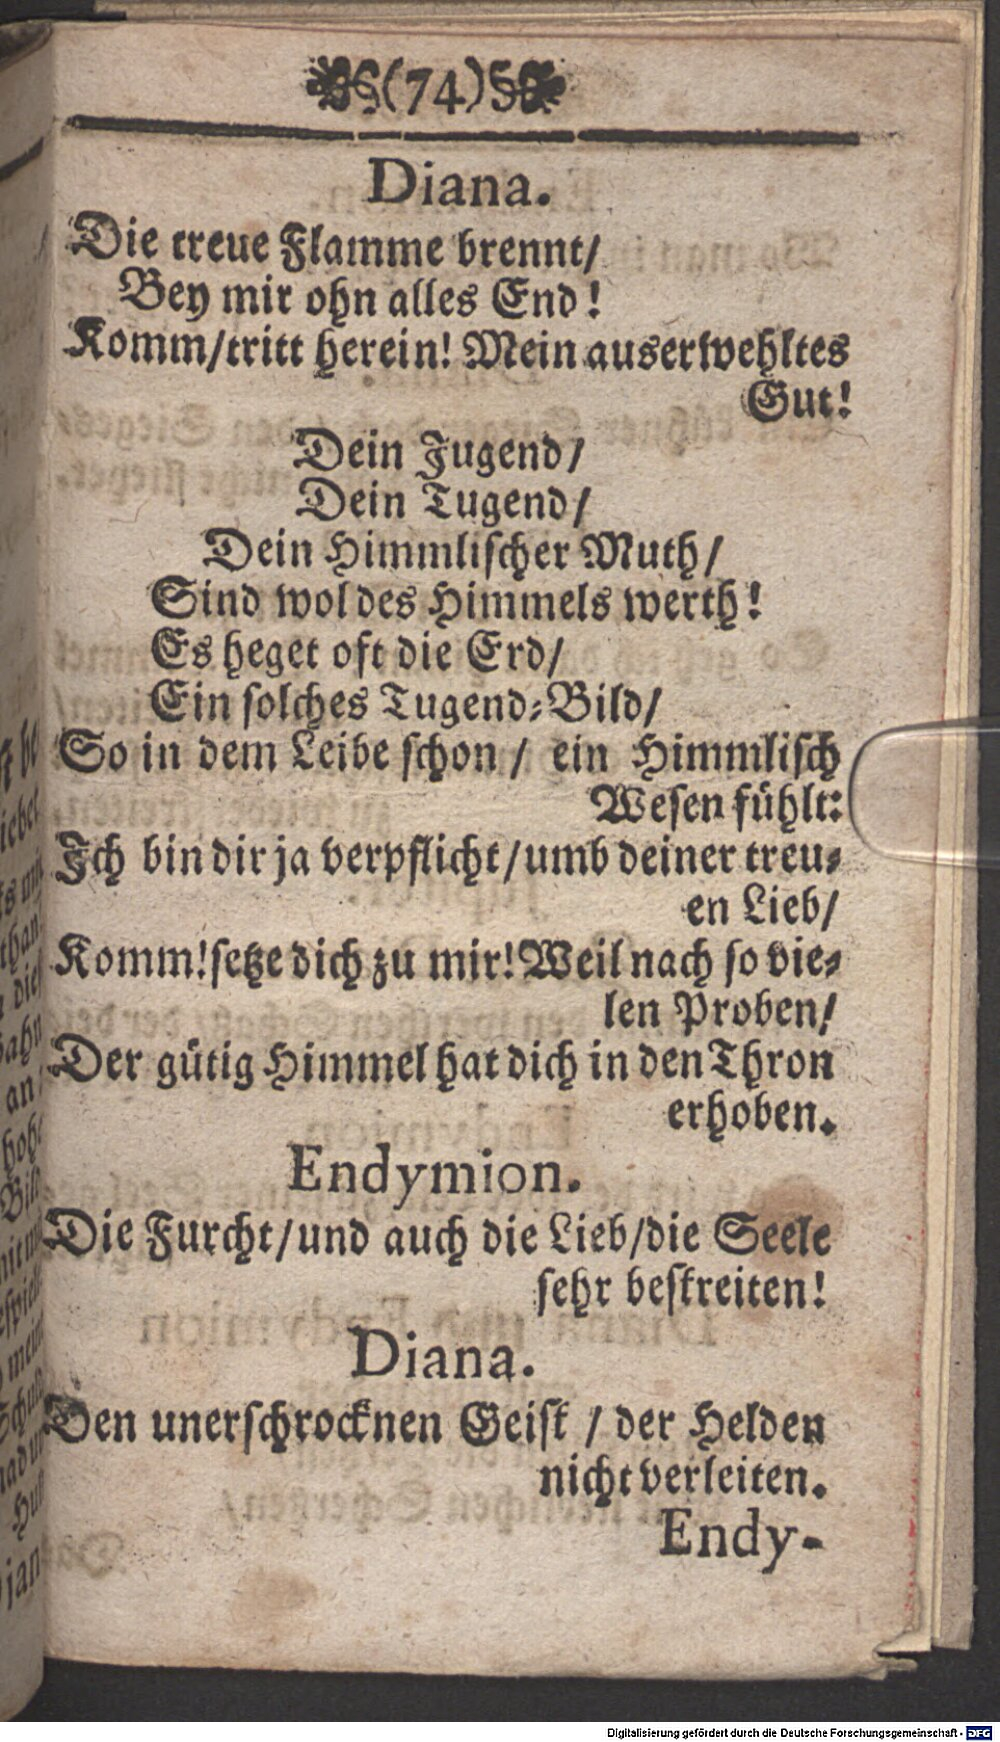 (74)
Diana.
Die treue Flamme brennt/
Bey mir ohn alles End!
Komm/tritt herein! Mein auserwehltes
Gut!
Dein Jugend/
Dein Tugend/
Dein Himmlischer Muth/
Sind wol des Himmels werth!
Es heget oft die Erd/
Ein solches Tugend-Bild/
So in dem Leibe schon / ein Himmlisch
Wesen fühlt:
Ich bin dir ja verpflicht/umb deiner treu-
en Lieb/
Komm!setze dich zu mir! Weil nach so vie-
len Proben/
Der gütig Himmel hat dich in den Thron
erhoben.
Endymion.
Die Furcht/und auch die Lieb/die Seele
sehr bestreiten!
Diana.
Den unerschrocknen Geist / der Helden
nicht verleiten.
Endy-
Digitalisierung gefördert durch die Deutsche Forschungsgemeinschaft - DFG